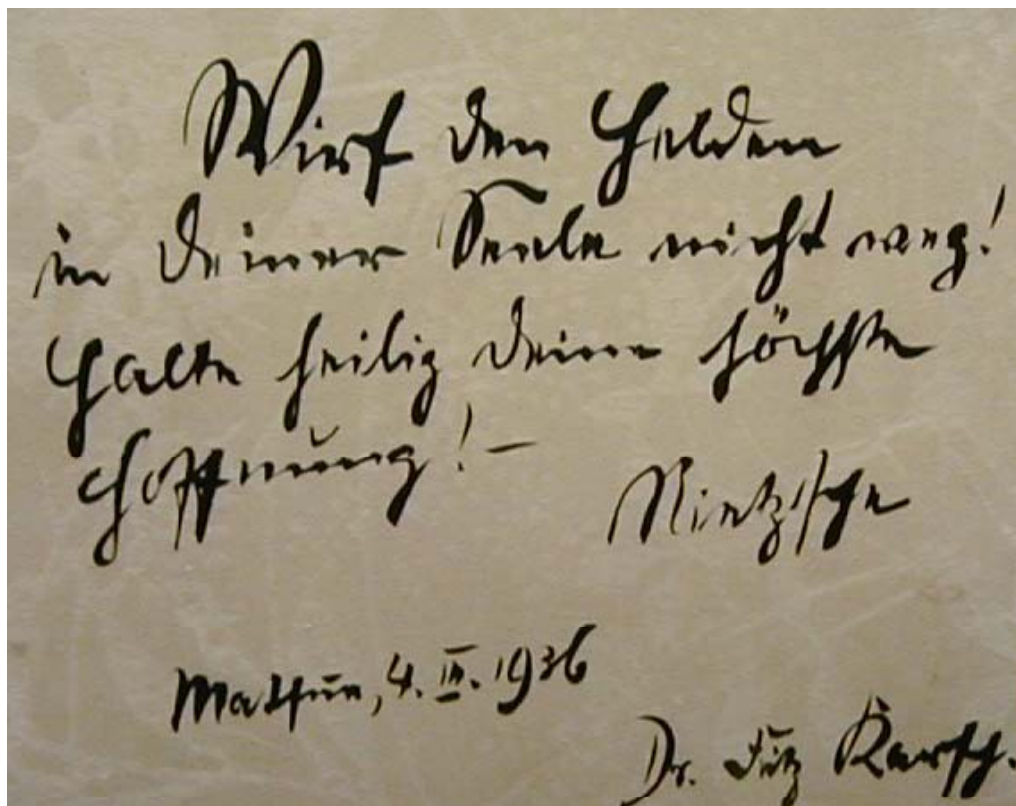 Wirf den Helden
in deiner Seele nicht weg!
Halte heilig deine höchste
Hoffnung! –
Nietzsche
Matsue, 4. III. 1936
Dr. Fritz Karsch.